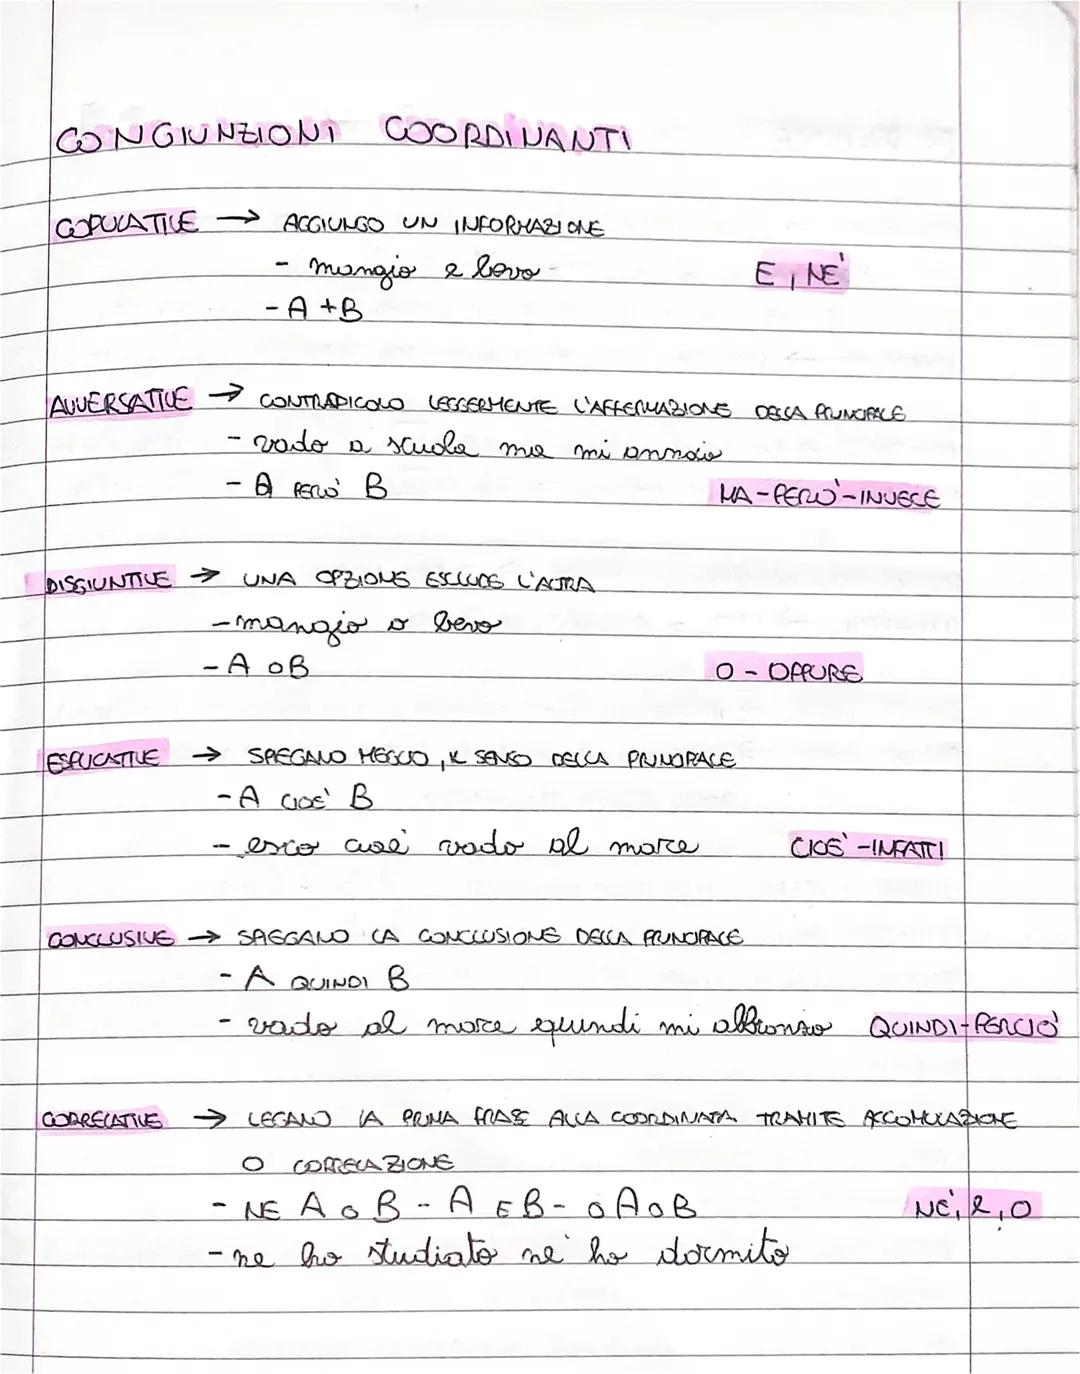 CONGIUNZIONI COORDINANTI
COPULATIVE → AGGIUNGO UN INFORMAZIONE
- mangio e bevo -
E, NE'
- A + B
AVVERSATIVE → CONTRADICOLO LEGGERMENTE L'AFFERMAZIONE DELLA PRINCIPALE
- vado a scuola ma mi annoio
- A PERO' B
MA - PERO' - INVECE
DISGIUNTIVE → UNA OPZIONE ESCLUDE L'ALTRA
- mangio o bevo
- A O B
O - OPPURE
ESPLICATIVE → SPIEGANO MEGLIO, IL SENSO DELLA PRINCIPALE
- A CIOE' B
- esco cioè vado al mare
CIOE' - INFATTI
CONCLUSIVE → SPIEGANO LA CONCLUSIONE DELLA PRINCIPALE
- A QUINDI B
- vado al mare e quindi mi abbronzo QUINDI - PERCIO'
CORRELATIVE → LEGANO LA PRIMA FRASE ALLA COORDINATA TRAMITE ACCOMULAZIONE
O CORRELAZIONE
- NE A O B - A E B - O A O B
NE', e, O
- ne ho studiato ne' ho dormito